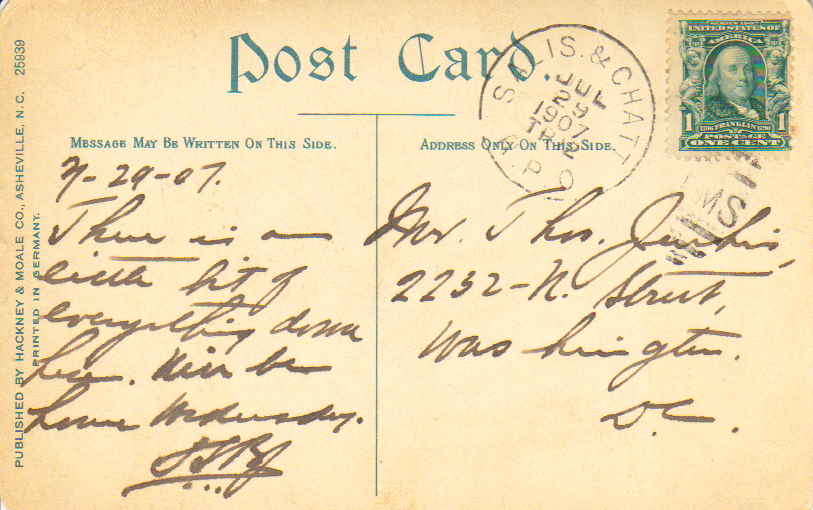 Post Card.
MESSAGE MAY BE WRITTEN ON THIS SIDE.
ADDRESS ONLY ON THIS SIDE.
PUBLISHED BY HACKNEY & MOALE CO., ASHEVILLE, N. C. 25939
PRINTED IN GERMANY.
SALIS. & CHATT
JUL
29
1907
R.P.O
UNITED STATES OF
AMERICA
1 1
FRANKLIN
POSTAGE
ONE CENT
RMS
7-29-07.
There is a
little bit of
everything down
here. Will be
home Wednesday.
Mr. Thos.
2232-N. Street,
Washington.
D.C.